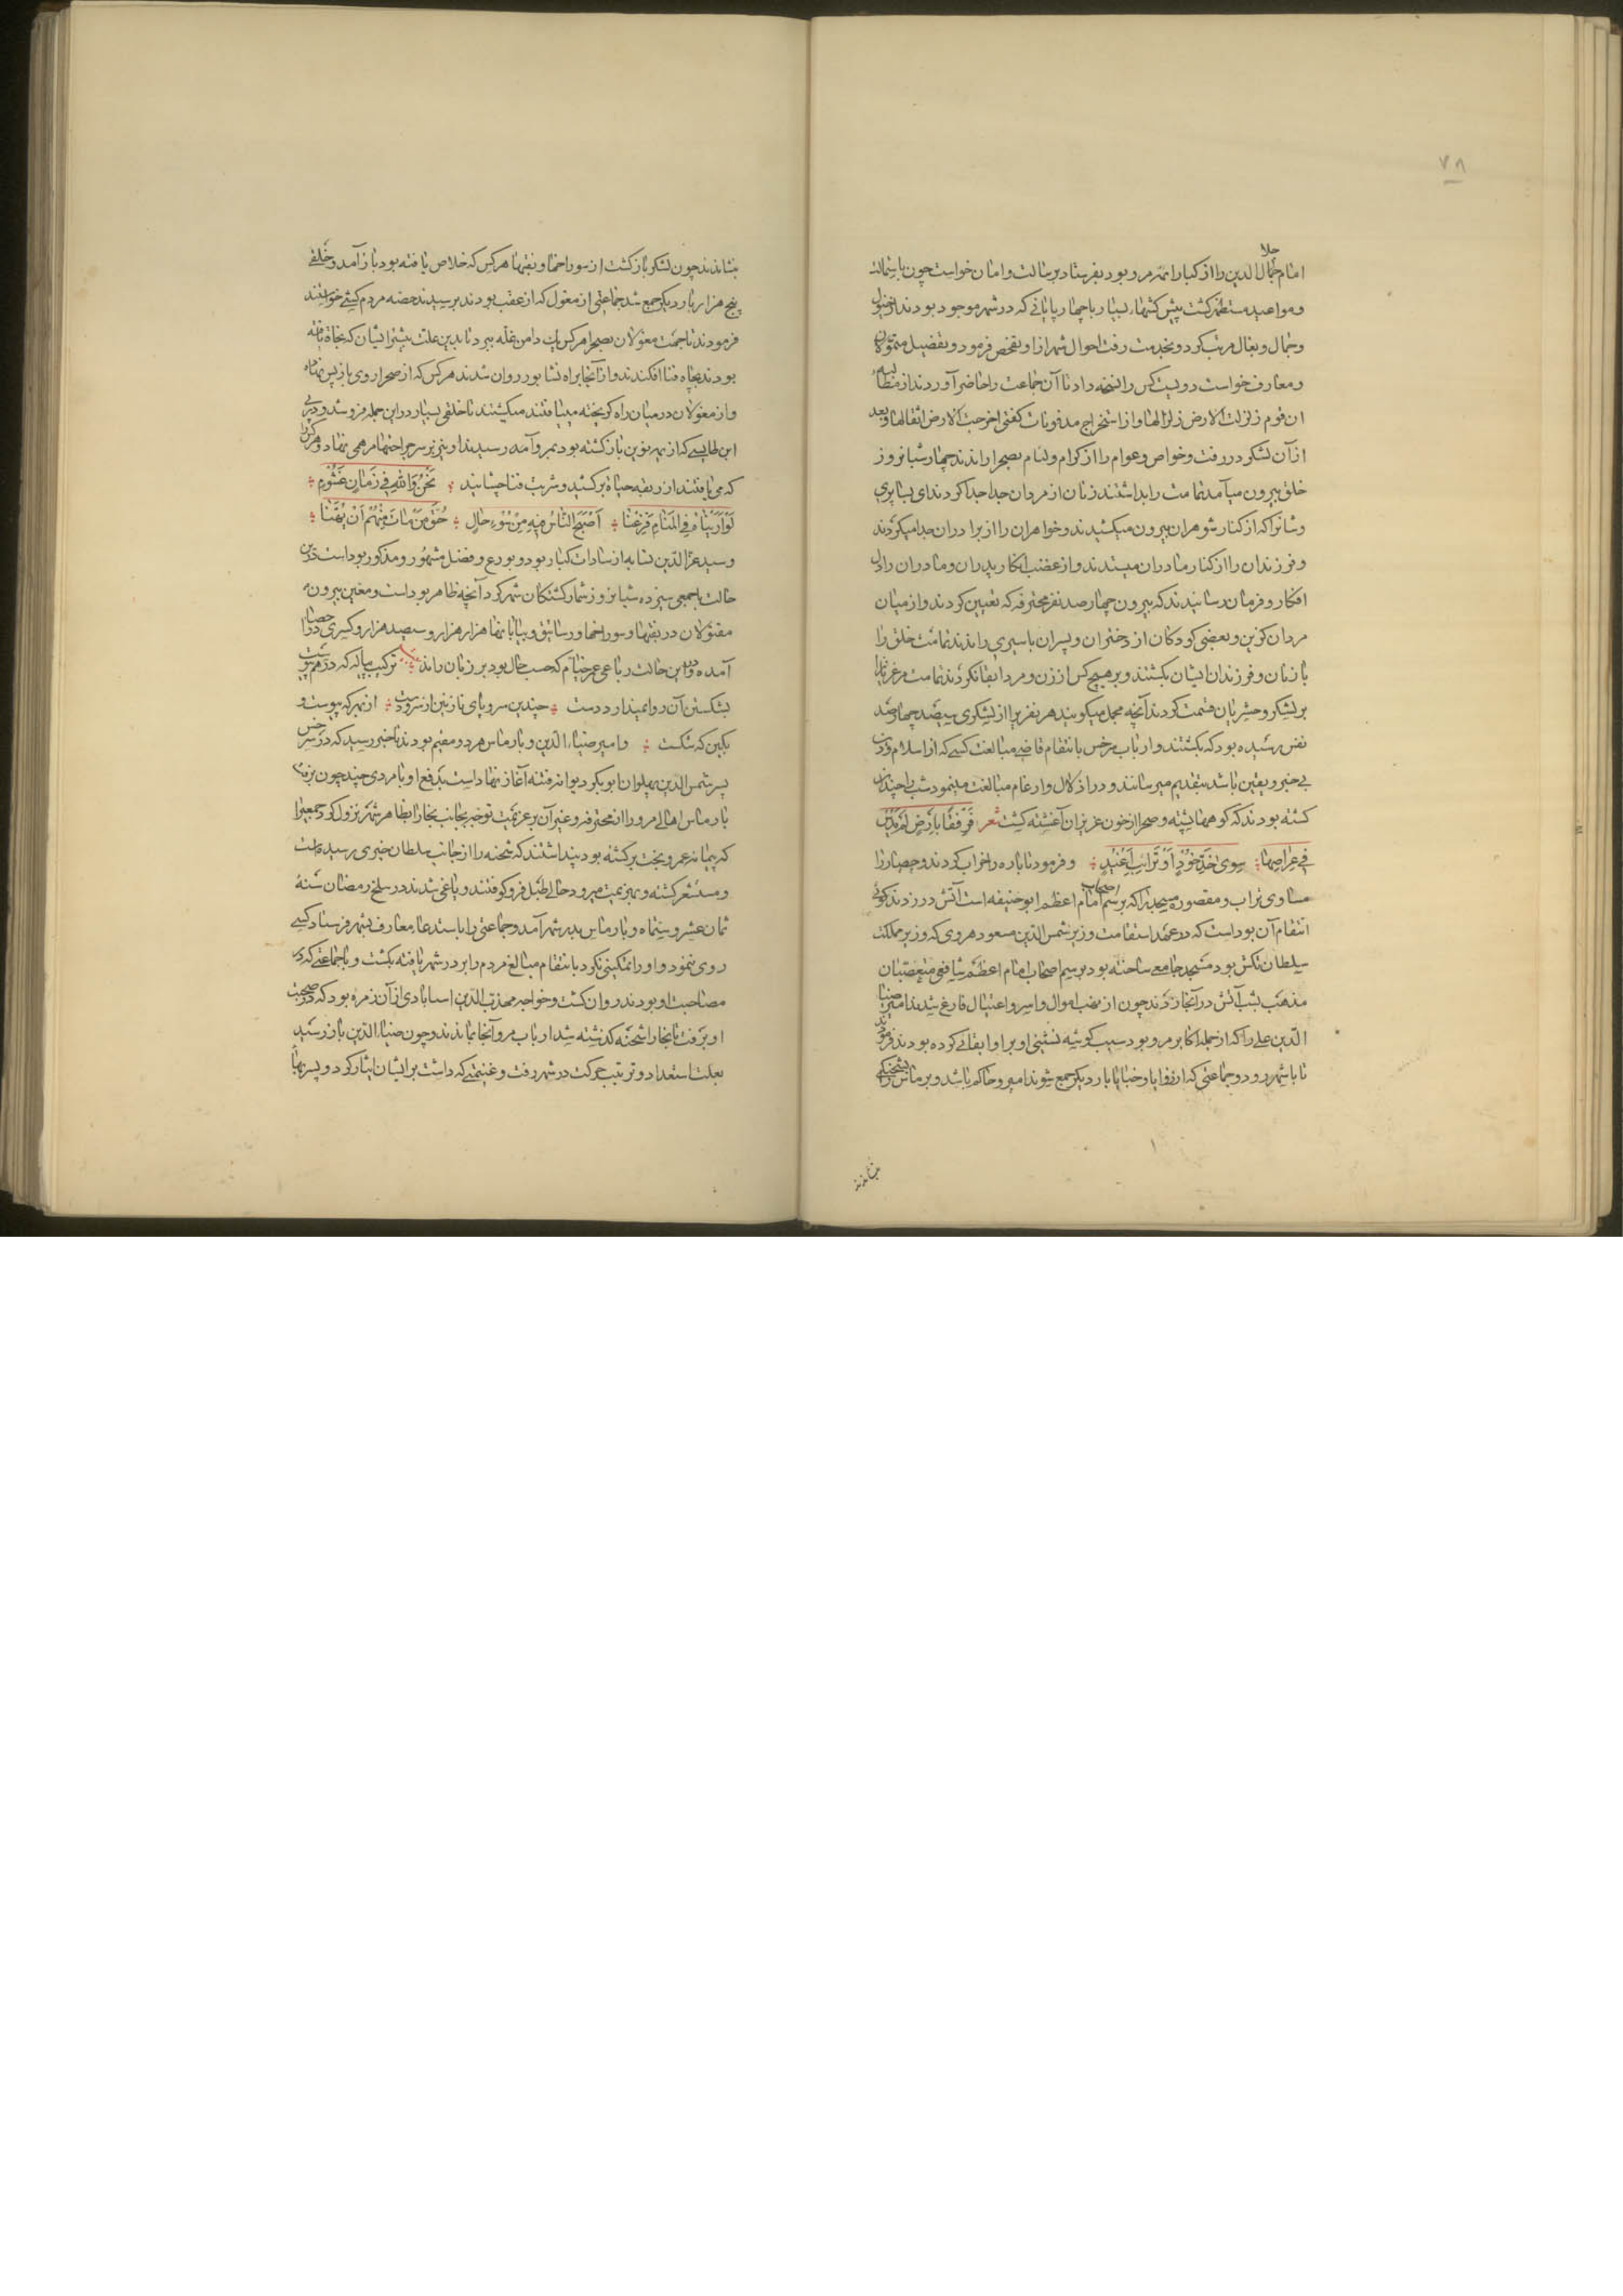 ٧٨
امام جمال الدین را از کبار ائمه مرو بود بفرستاد برسالت و امان خواست چون باستمالت
و مواعید مستظهر کشت پیش کشها، بسیار با چهارپایانی که در شهر موجود بودند از خیول
و جمال و بغال مرتب کرد و بخدمت رفت احوال شهر ازاو تفحص فرمود و تفصیل متمولان
و معارف خواست دویست کس را نسخه داد تا آن جماعت را حاضر آوردند از مطالبه
ان قوم زلزلت الارض زلزالها و از استخراج مدفونات کفتی اخرجت الارض اثقالها و بعد
ازآن لشکر در رفت و خواص و عوام را از کرام و لئام بصحرا راندند چهار شبانروز
خلق بیرون میآمد تمامت را بداشتند زنان از مردان جدا جدا کردند ای بسا پری
وشانرا که از کنار شوهران بیرون میکشیدند و خواهران را از برادران جدا میکردند
و فرزندان را از کنار مادران میستدند و از غضب ابکار پدران و مادران را دل
افکار و فرمان رسانیدند که بیرون چهارصد نفر محترفه که تعیین کردند و از میان
مردان کزین و بعضی کودکان از دختران و پسران باسیری راندند تمامت خلق را
با زنان و فرزندان ایشان بکشتند و بر هیچ کس از زن و مرد ابقا نکردند تمامت مرغزیانرا
بر لشکر و حشریان قسمت کردند آنچه مجمل میکویند هر نفری را از لشکری سیصد چهارصد
نفس رسیده بود که بکشتند و ارباب سرخس بانتقام قاضی مبالغت کسی که از اسلام و دین
بی خبر و بیقین باشد بتقدیم میرسانند و در اذلال و ارغام مبالغت مینمود شب را چندان
کشته بودند که کوهها پشته و صحرا از خون عزیزان آغشته کشت شعر
فی عراصها سوی خد خود او ترایب اغید و فرمود تا باره را خراب کردند و حصار را
مساوی تراب و مقصوره مسجد را که برسم اصحاب امام اعظم ابو حنیفه است آتش در زدند کوئی
انتقام آن بوداست که در عهد استقامت وزیر شمس الدین مسعود هروی که وزیر مملکت
سلطان تکش بود مسجد جامع ساخته بود برسم اصحاب امام اعظم شافعی متعصبان
مذهب بشب آتش درآنجا زدند چون از نهب اموال و اسر و اغتیال فارغ شدند امیر ضیا
الدین علی را که از جمله اکابر مرو بود سبب کوشه نشینی او بر او ابقائی کرده بودند فرمودند
تا با شهر رود و جماعتی که از زوایا و خبایا بار دیکر جمع شوند امیر و حاکم باشد و برماس را بشحنکی
بنشاندند
بنشاندند چون لشکر بازکشت از سوراخها و نقبها هرکس که خلاص یافته بود بازآمد و خلقی
پنج هزار بار دیکر جمع شد جماعتی از مغول که از عقب بودند برسیدند حصه مردم کشی خواستند
فرمودند تا جهت مغولان بصحرا هر کس یک دامن غله بیرد تا بدین علت بیشتر ایشان که نجاة یافته
بودند بچاه فنا افکندند و از آنجا براه نشابور روان شدند هرکس که از صحرا روی بازپس نهاده
و از مغولان در میان راه کریخته مییافتند میکشتند تا خلقی بسیار دراین جمله فرو شد و در پی
این طایسی که از یمه نوین بازکشته بود بمرو آمده رسیدند او نیز بر سر جراحتها مرهمی نهاد و هرکرا
که می یافتند از ربقه حیاة برکشید و شربت فنا چشانید نَحْنُ وَاللهِ فِی زَمَانٍ غَشُومٍ
لَوْ اَرَیْنَاهُ فِی الْمَنَامِ فَزِعْنَا اَصْبَحَ النَّاسُ فِیهِ مِنْ سُوءِ حَالٍ حُقَّ مَنْ مَاتَ مِنْهُمْ اَنْ یُهَنَّا
و سید عزالدین نسابه از سادات کبار بود و بورع و فضل مشهور و مذکور بوداست درین
حالت با جمعی سیزده شبانروز شمار کشتکان شهر کرد آنچه ظاهر بوداست و معین بیرون
مقتولان در نقبها و سوراخها و رساتیق و بیابانها هزار هزار و سیصد هزار و کسری در احصا
آمده و درین حالت رباعی عمر خیام که حسب حال بود بر زبان راند ترکیب پیاله که درهم پیوست
بشکستن آن روا نمیدارد دست چندین سر و پای نازنین از سر دست از مهر که پیوست و
بکین که شکست و امیر ضیاء الدین و بارماس هردو مقیم بودند تا خبر رسید که در سرخس
پسر شمس الدین پهلوان ابوبکر دیوانه فتنه آغاز نهاداست بدفع او با مردی چند چون برفت
بارماس اهالی مرو را از محترفه و غیر آن بر عزیمت توجه بجانب بخارا بظاهر شهر نزول کرد جمعی را
که پیمانه عمر و بخت برکشته بود پنداشتند که شحنه را از جانب سلطان خبری رسیده است
و مستشعر کشته و بهزیمت میرود حالی طبل فرو کوفتند و یاغی شدند در سلخ رمضان سنه
ثمان عشر و ستماه و بارماس بدر شهر آمد و جماعتی را باستدعاء معارف بشهر فرستاد کسی
روی ننمود و او را تمکینی نکرد بانتقام مبالغ مردم را بر در شهر یافته بکشت و با جماعتی که در
مصاحبت او بودند روان کشت و خواجه مهذب الدین اسبابادی ازآن زمره بود که در صحبت
او برفت تا بخارا شحنه کذشته شد ارباب مرو آنجا بماندند و چون ضیاء الدین باز رسید
بعلت استعداد و ترتیب حرکت در شهر رفت و غنیمتی که داشت بر ایشان ایثار کرد و پسر بها